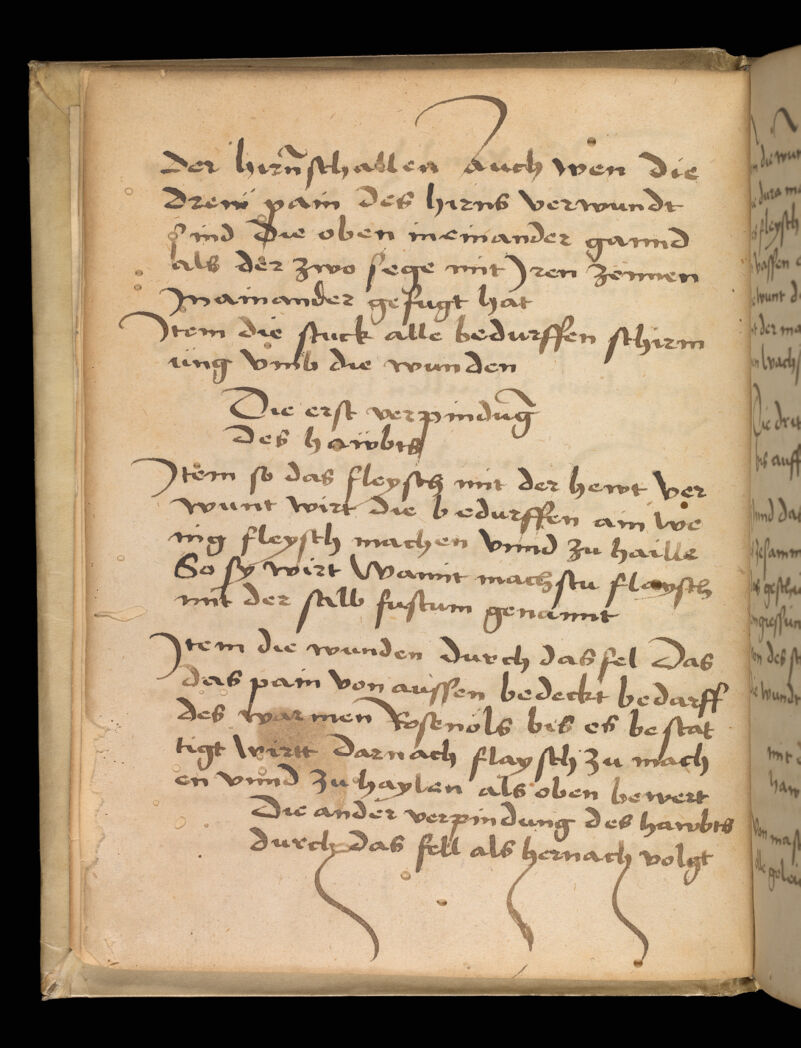 der hirn̄schallen Auch wen die
drew pain des hirns verwundt
sind Die oben ineinander gannd
als der zwo sege mit Jren zennen
Jnainander gefugt hat
Jtem die stuck alle bedurffen schirm
ung vmb die wunden
Die erst verpindūg
des hawbts
Jtem so das fleysch mit der hewt ver
wunt wirt die bedurffen ain we
nig fleysch machen vnnd zu haille
So sy wirt Wamit machstu flaysch
mit der salb fustum genannt
Jtem die wunden durch das fel Das
das pain von aussen bedeckt bedarff
des warmen Rosenöls bis es bestat
tigt wirtt Darnach flaysch zu mach
en vnnd zu haylen als oben bewert
Die ander verpindung des hawbts
durch das fell als hernach volgt